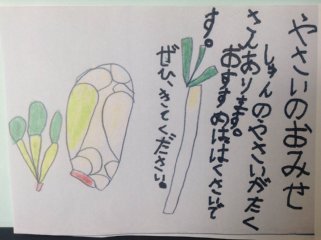 やさいのおみせ
しゅんのやさいがたく
さんあります。
おすすめははくさいで
す。
ぜひ、きてください。